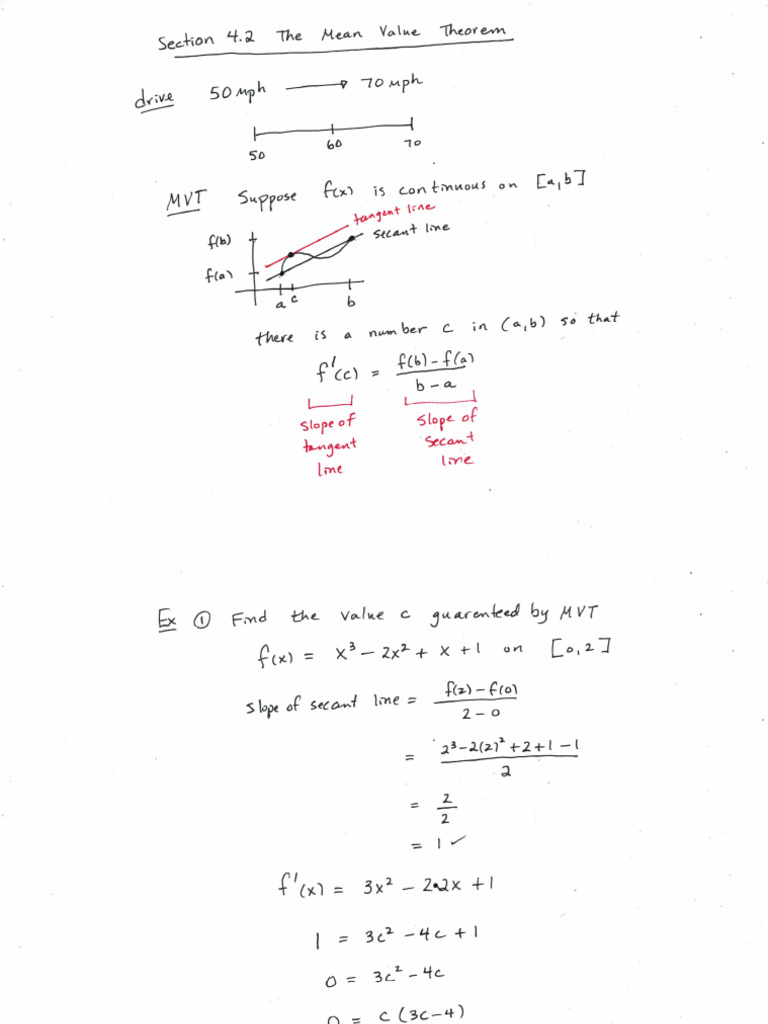 Section 4.2 The Mean Value Theorem
drive 50 mph → 70 mph
50 60 70
MVT Suppose f(x) is continuous on [a,b]
tangent line
secant line
f(b)
f(a)
a c b
there is a number c in (a,b) so that
f'(c) = f(b) - f(a) / b - a
slope of tangent line
slope of secant line
Ex ① Find the value c guarenteed by MVT
f(x) = x³ - 2x² + x + 1 on [0,2]
slope of secant line = f(2) - f(0) / 2 - 0
= 2³ - 2(2)² + 2 + 1 - 1 / 2
= 2 / 2
= 1 ✓
f'(x) = 3x² - 2•2x + 1
1 = 3c² - 4c + 1
0 = 3c² - 4c
0 = c (3c - 4)